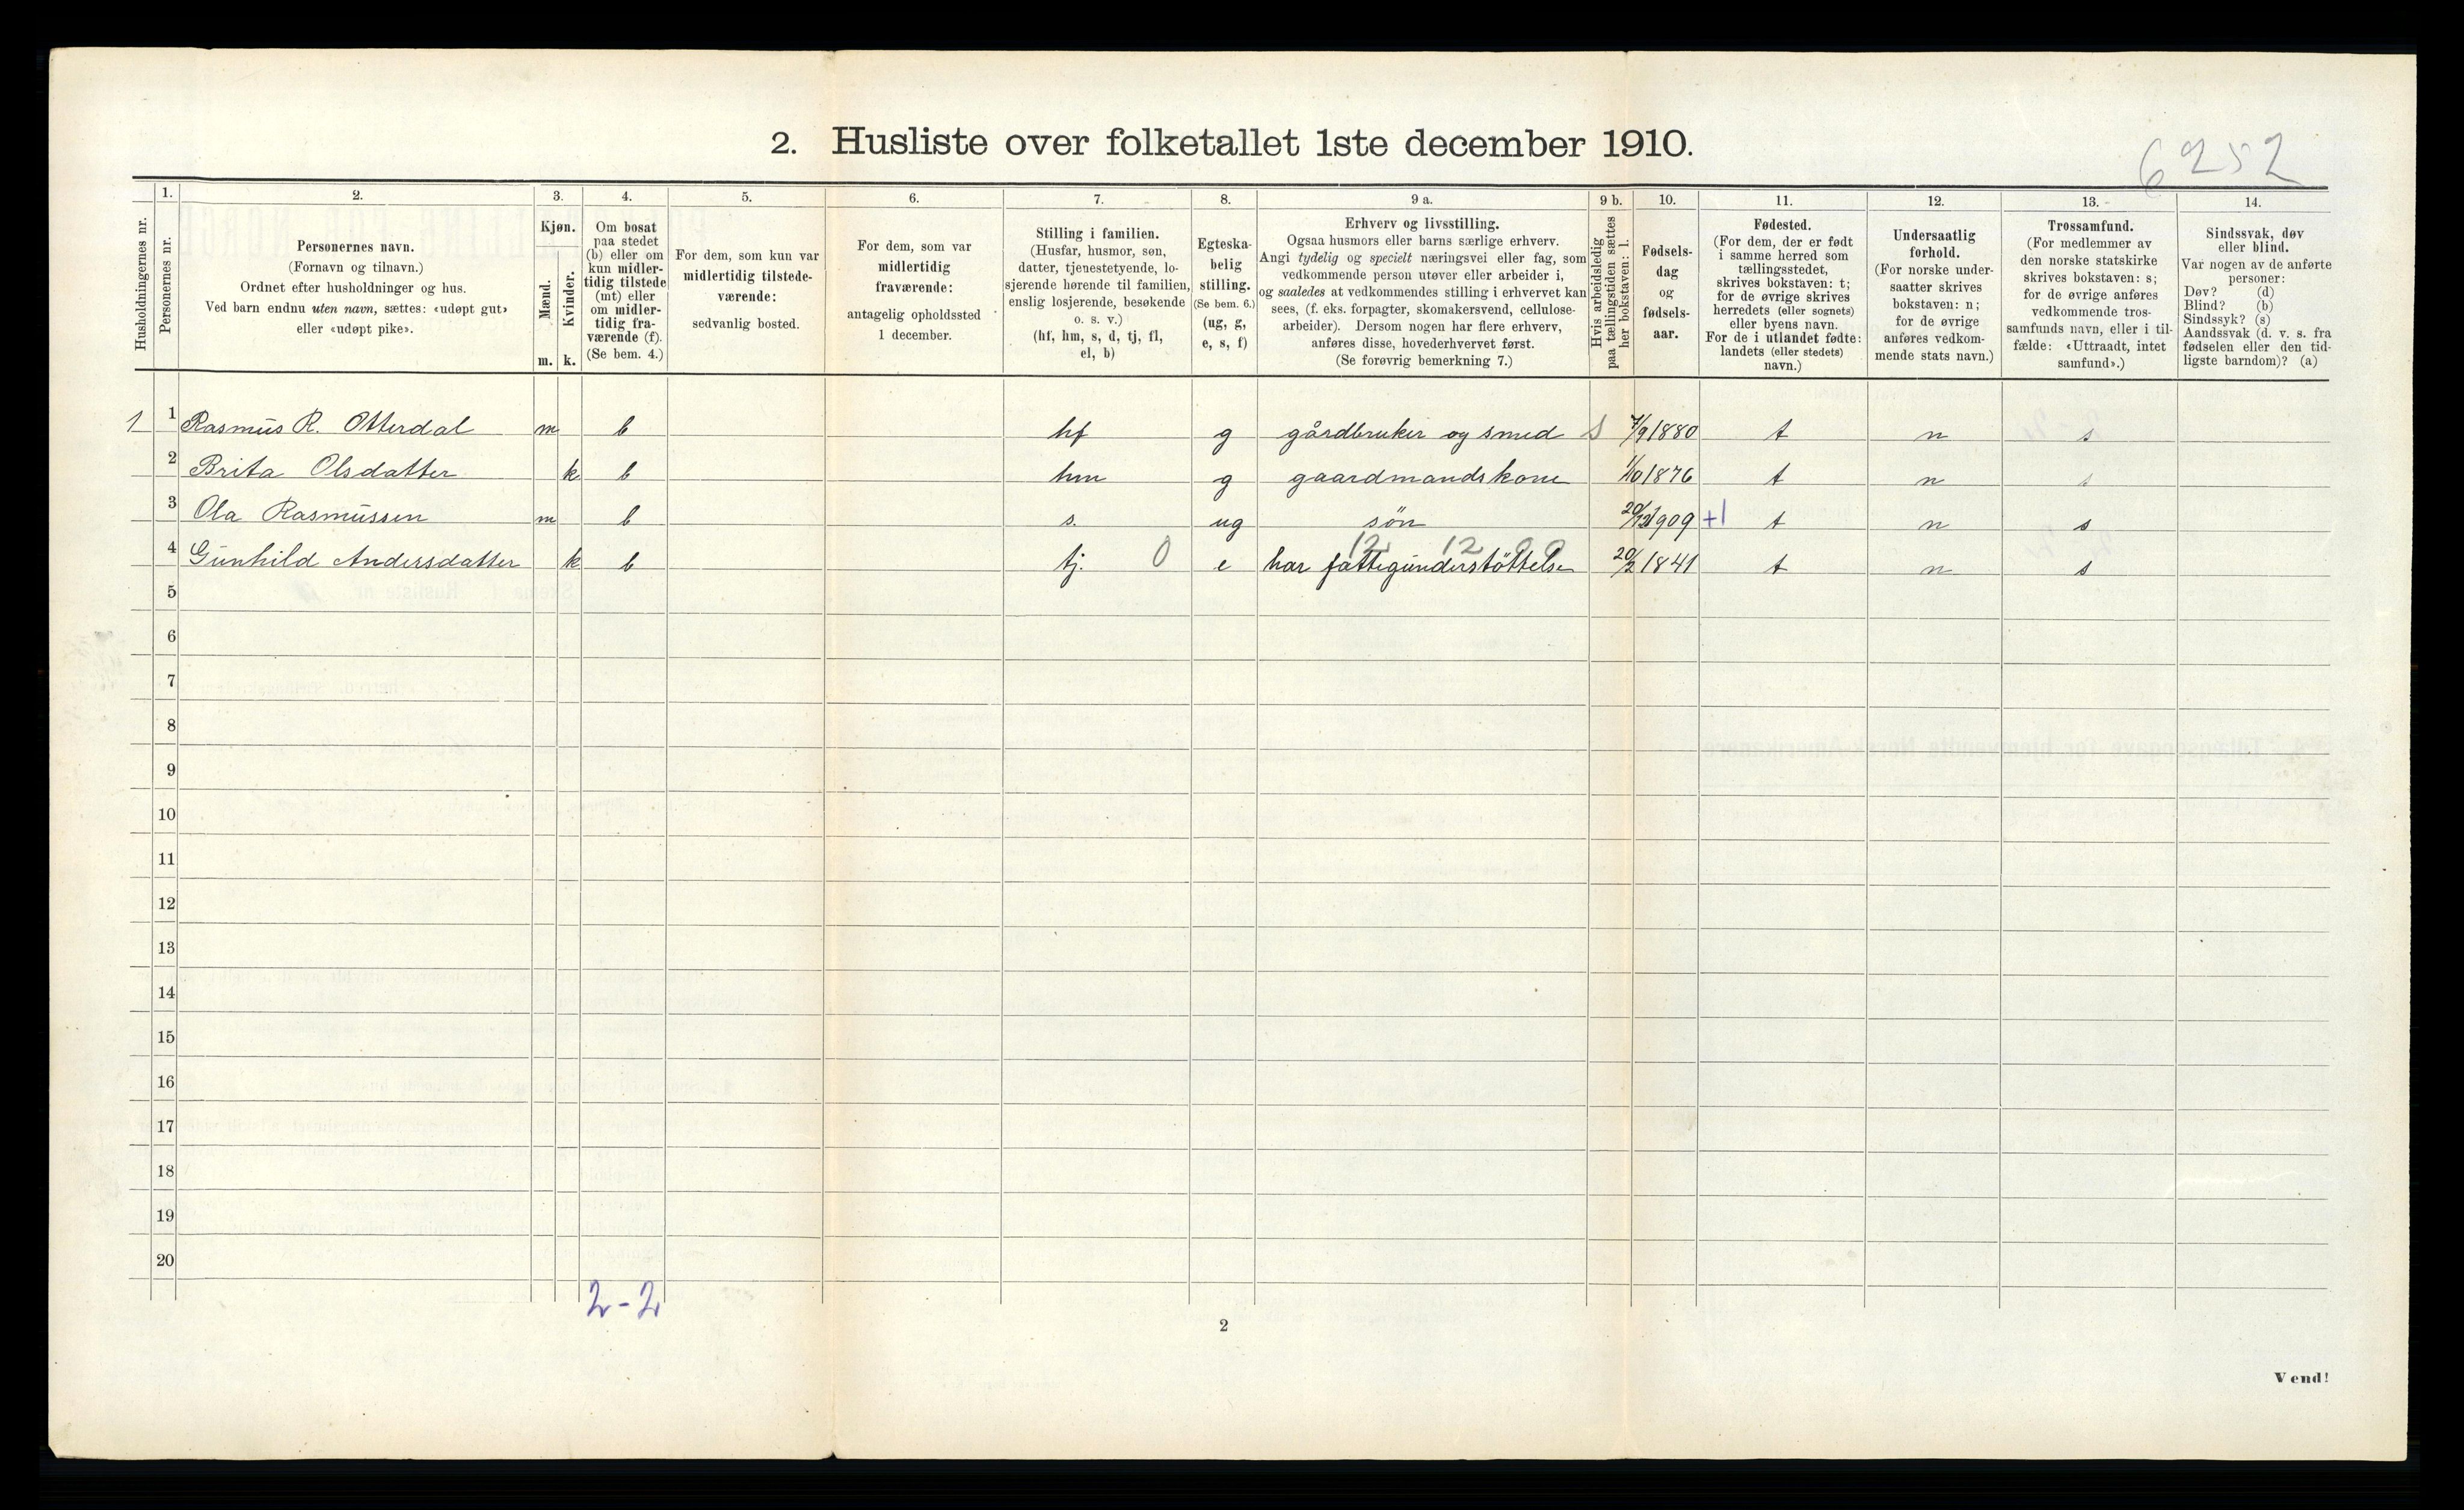 2. Husliste over folketallet 1ste december 1910.
6252
Husholdningernes nr.
1.
Personernes nr.
2.
Personernes navn.
(Fornavn og tilnavn.)
Ordnet efter husholdninger og hus.
Ved barn endnu uten navn, sættes: «udøpt gut»
eller «udøpt pike».
3.
Kjøn.
Mænd.
Kvinder.
m.
k.
4.
Om bosat
paa stedet
(b) eller om
kun midler-
tidig tilstede
(mt) eller
om midler-
tidig fra-
værende (f).
(Se bem. 4.)
5.
For dem, som kun var
midlertidig tilstede-
værende:
sedvanlig bosted.
6.
For dem, som var
midlertidig
fraværende:
antagelig opholdssted
1 december.
7.
Stilling i familien.
(Husfar, husmor, søn,
datter, tjenestetyende, lo-
sjerende hørende til familien,
enslig losjerende, besøkende
o. s. v.)
(hf, hm, s, d, tj, fl,
el, b)
8.
Egteska-
belig
stilling.
(Se bem. 6.)
(ug, g,
e, s, f)
9 a.
Erhverv og livsstilling.
Ogsaa husmors eller barns særlige erhverv.
Angi tydelig og specielt næringsvei eller fag, som
vedkommende person utøver eller arbeider i,
og saaledes at vedkommendes stilling i erhvervet kan
sees, (f. eks. forpagter, skomakersvend, cellulose-
arbeider). Dersom nogen har flere erhverv,
anføres disse, hovederhvervet først.
(Se forøvrig bemerkning 7.)
9 b.
Hvis arbeidsledig
paa tællingstiden sættes
her bokstaven: l.
10.
Fødsels-
dag
og
fødsels-
aar.
11.
Fødested.
(For dem, der er født
i samme herred som
tællingsstedet,
skrives bokstaven: t;
for de øvrige skrives
herredets (eller sognets)
eller byens navn.
For de i utlandet fødte:
landets (eller stedets)
navn.)
12.
Undersaatlig
forhold.
(For norske under-
saatter skrives
bokstaven: n;
for de øvrige
anføres vedkom-
mende stats navn.)
13.
Trossamfund.
(For medlemmer av
den norske statskirke
skrives bokstaven: s;
for de øvrige anføres
vedkommende tros-
samfunds navn, eller i til-
fælde: «Uttraadt, intet
samfund».)
14.
Sindssvak, døv
eller blind.
Var nogen av de anførte
personer:
Døv? (d)
Blind? (b)
Sindssyk? (s)
Aandssvak (d. v. s. fra
fødselen eller den tid-
ligste barndom)? (a)
1 1 Rasmus R. Otterdal m b hf g gårdbruker og smed S 7/9 1880 t n s
2 Brita Olsdatter k b hm g gaardmandskone 1/10 1876 t n s
3 Ola Rasmussen m b s. ug søn 20/12 1909 +1 t n s
12 12 0 0
4 Gunhild Andersdatter k b tj. 0 e har fattigunderstöttelse 20/2 1841 t n s
5
6
7
8
9
10
11
12
13
14
15
16
17
18
19
20
2-2
2
Vend!